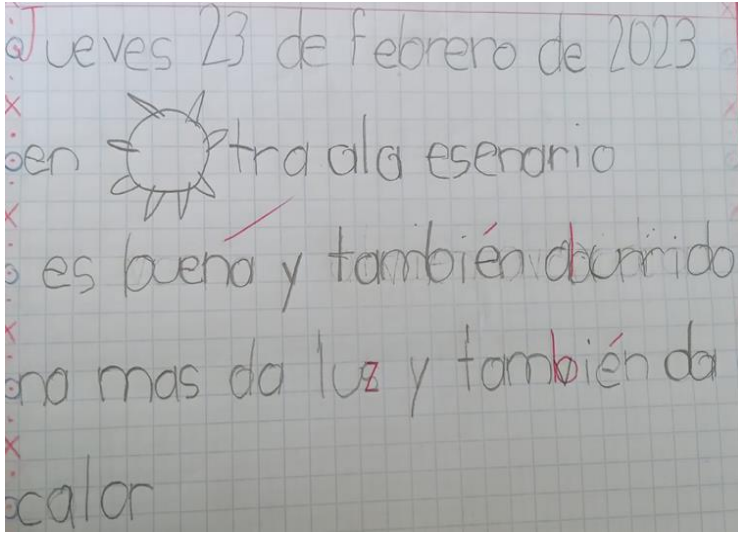 Jueves 23 de febrero de 2023
en tra ala esenario
es buena y también aburrido
no mas da luz y también da
calor